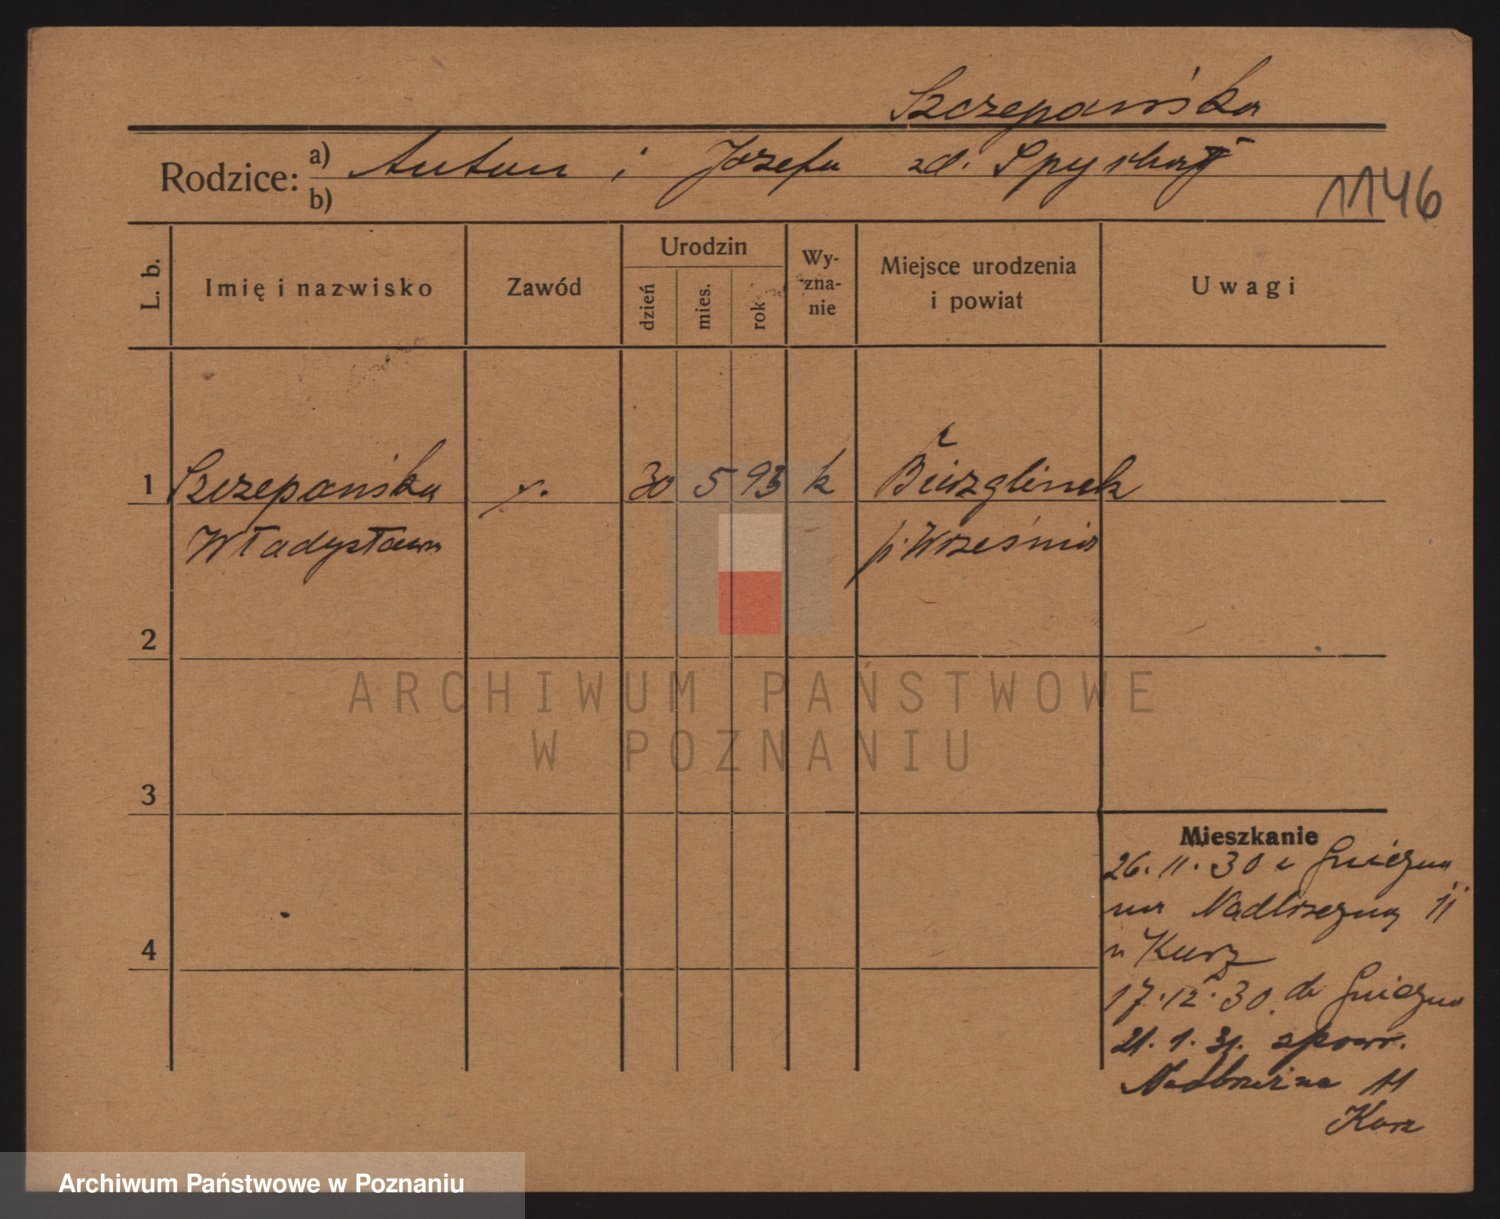 Szczepańska
Rodzice: a) Antoni i Józefa zd.
b)
1146
L. b.
Imię i nazwisko
Zawód
Urodzin
dzień
mies.
rok
Wy-
zna-
nie
Miejsce urodzenia
i powiat
Uwagi
1 Szczepańska 30 5 93 k Bierzglinek
Władysława p. Września
2
ARCHIWUM PAŃSTWOWE
W POZNANIU
3
Mieszkanie
26.11.30 z Gniezna
na Nadbrzeżną 11
u Kurz
4
17.12.30 do Gniezna
21.1.31. spowr.
Nadbrzeżna 11
Kurz
Archiwum Państwowe w Poznaniu